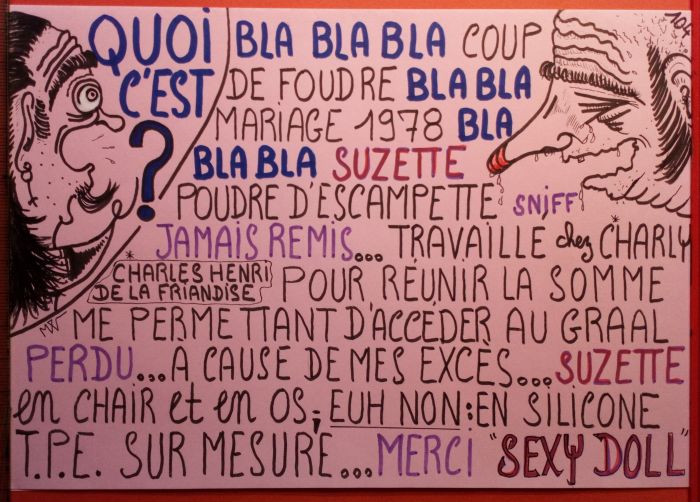 104
QUOI BLA BLA BLA COUP
C'EST DE FOUDRE BLA BLA
? MARIAGE 1978 BLA
BLA BLA SUZETTE
POUDRE D'ESCAMPETTE SNIFF
JAMAIS REMIS... TRAVAILLE chez CHARLY*
*CHARLES HENRI DE LA FRIANDISE POUR RÉUNIR LA SOMME
ME PERMETTANT D'ACCÉDER AU GRAAL
PERDU... À CAUSE DE MES EXCÈS... SUZETTE
en CHAIR et en OS; EUH NON: EN SILICONE
T.P.E. SUR MESURE... MERCI "SEXY DOLL"